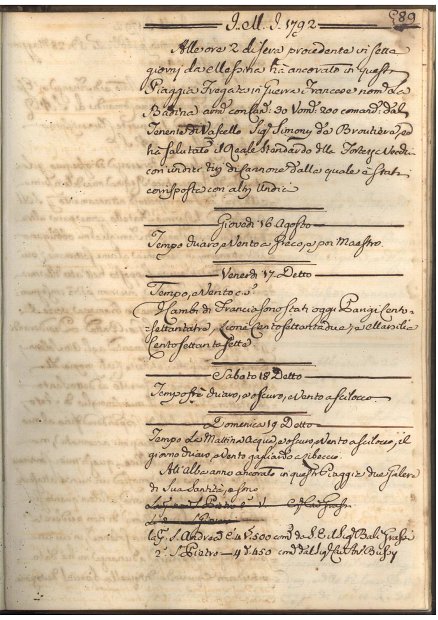 J. M. J. 1792
589
Alle ore 2 di sera procedente in sette
giorni da Messina hà ancorato in questa
Piaggia Fregata in Guerra Francese nomta La
Badina armta con Canni 30 Vomi 200 comandta dal
Tenente di Vascello Sigr Simony da Broutiera, ed
hà salutato il Reale Stendardo della Fortezza
con undeci tiri di Cannone dalla quale è stata
corrisposta con altri Undici
Giovedi 16 Agosto
Tempo chiaro, e Vento a Greco, e poi Maestro
Venerdi 17 Detto
Tempo, e Vento
Cambi di Francia sono stati oggi Parigi Cento
settantatre, Lione Cento settantadue, e Marsilia
Cento settanta sette
Sabato 18 Detto
Tempo frà chiaro, e oscuro, e Vento a scilocco
Domenica 19 Detto
Tempo La Mattina Acqua, e oscuro, e Vento a scilocco, il
giorno chiaro, e vento gagliardo a libeccio
All'alba anno ancorato in questa Piaggia due Galere
di Sua Santità, e sono
S. Pietro
4: 500 comta da S. E. il Sigr Bali
2a S. Pietro — 4: 450 comta dal Sigr Bussy